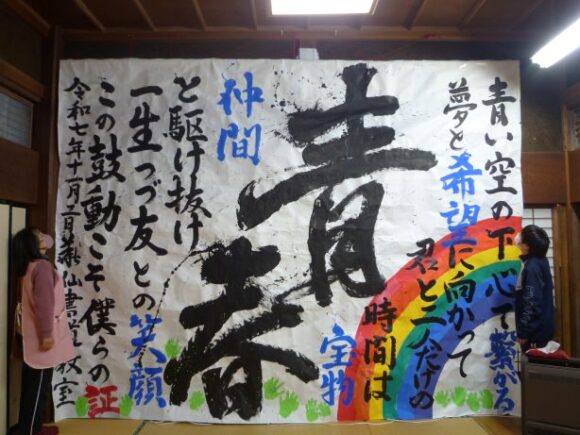 青い空の下心で繋がる
夢と希望に向かって
君と二人だけの
時間は宝物
青春
仲間
と駆け抜け
一生つづ友との笑顔
この鼓動こそ僕らの証
令和七年十一月 書道教室